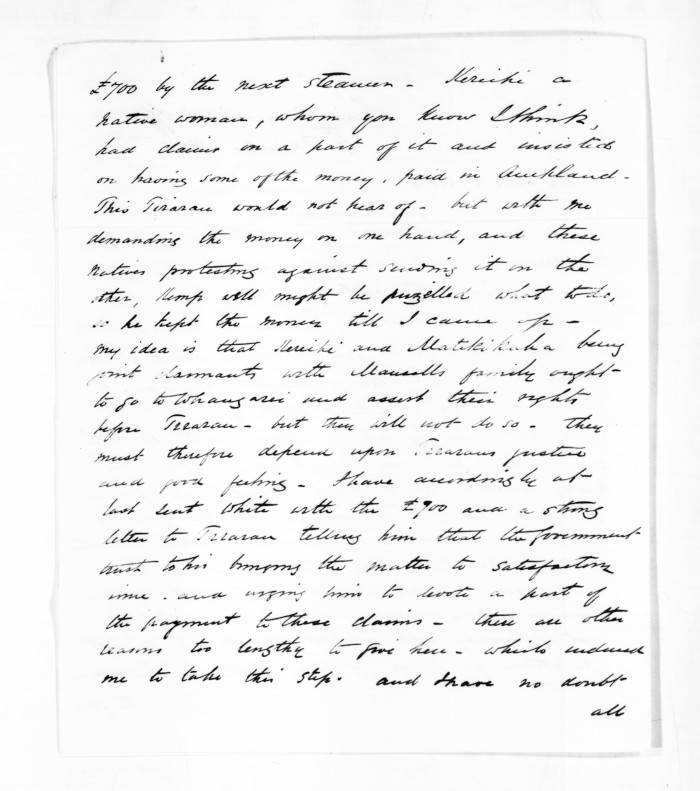 £700 by the next steamer - Kereihi a
native woman, whom you know I think,
had claims on a part of it and insisted
on having some of the money, paid in Auckland -
This Tirarau would not hear of - but with me
demanding the money on one hand, and these
natives protesting against sending it on the
other, Kemp well might be puzzled what to do,
so he kept the money till I came up -
my idea is that Kereihi and Matikikuha being
joint claimants with Maunsells family ought
to go to Whangarei and assert their rights
before Tirarau - but they will not do so - they
must therefore depend upon Tiraraus justice
and good feeling - I have accordingly at
last sent White with the £700 and a strong
letter to Tirarau telling him that the Government
trust to his bringing the matter to satisfactory
issue - and urging him to devote a part of
the payment to these claims - there are other
reasons too lengthy to give here - which induced
me to take this step. and I have no doubt
all